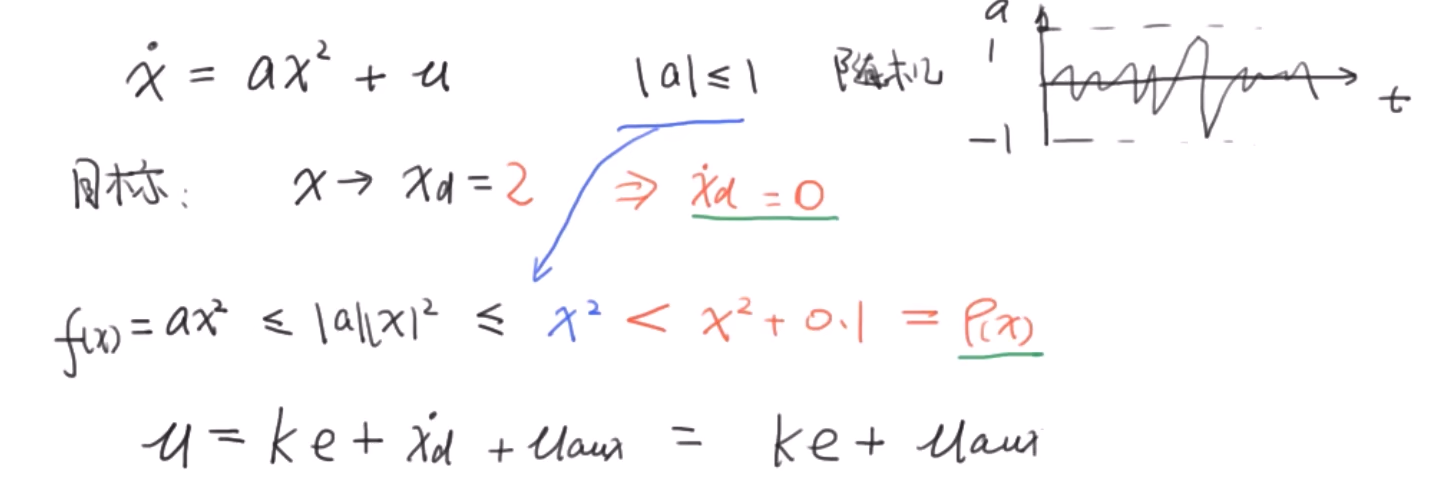 ẋ = ax² + u |a| ≤ 1 随机
a
1
-1
t
目标: x → xd = 2 ⇒ ẋd = 0
f(x) = ax² ≤ |a||x|² ≤ x² < x² + 0.1 = ρ(x)
u = ke + ẋd + uaux = ke + uaux